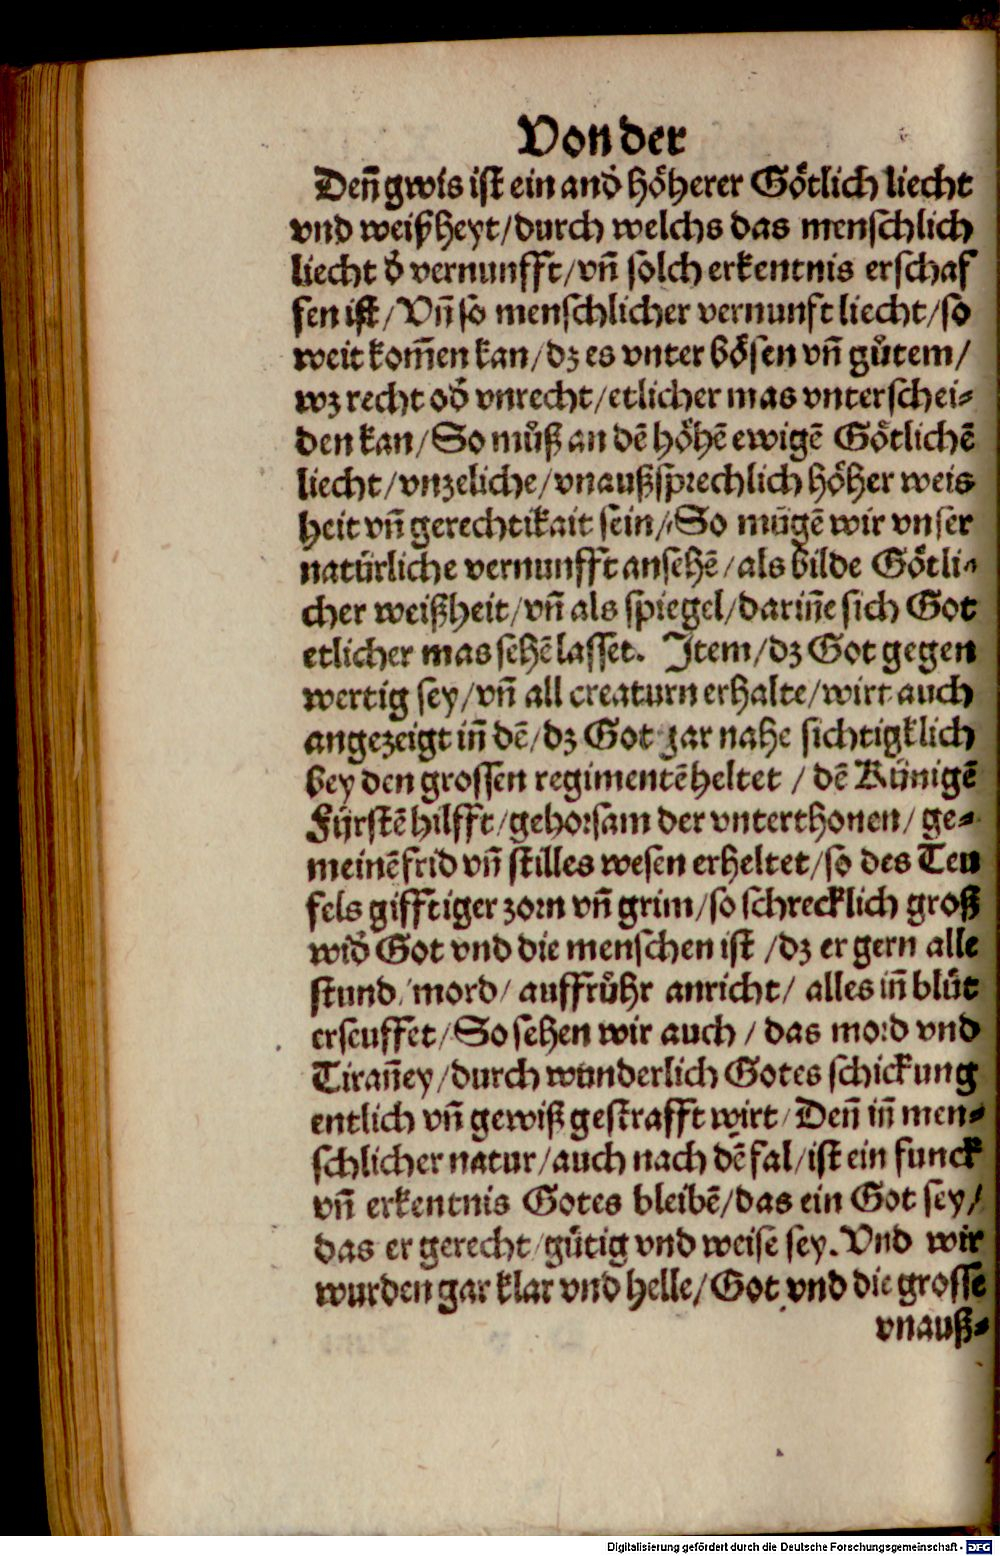 Von der
Deñ gwis ist ein and̓ höherer Götlich liecht
vnd weißheyt/durch welchs das menschlich
liecht d̓ vernunfft/vñ solch erkentnis erschaf
fen ist/Vñ so menschlicher vernunft liecht/so
weit kom̃en kan/dz es vnter bösen vñ gůtem/
wz recht od̓ vnrecht/etlicher mas vnterschei⸗
den kan/So můß an dē höhē ewigē Götlichē
liecht/vnzeliche/vnaußsprechlich höher weis
heit vñ gerechtikait sein/So mügē wir vnser
natürliche vernunfft ansehē/als bilde Götli⸗
cher weißheit/vñ als spiegel/dariñe sich Got
etlicher mas sehē lasset. Item/dz Got gegen
wertig sey/vñ all creaturn erhalte/wirt auch
angezeigt iñ dē/dz Got gar nahe sichtigklich
bey den grossen regimentē heltet / dē Künigē
Fürstē hilfft/gehorsam der vnterthonen/ ge⸗
meinē frid vñ stilles wesen erheltet/so des Teu
fels gifftiger zorn vñ grim/so schrecklich groß
wid̓ Got vnd die menschen ist /dz er gern alle
stund/mord/ auffrůhr anricht/ alles iñ blůt
erseuffet/So sehen wir auch / das mord vnd
Tirañey/durch wunderlich Gotes schickung
entlich vñ gewiß gestrafft wirt/Deñ iñ men⸗
schlicher natur/auch nach dē fal/ist ein funck
vñ erkentnis Gotes bleibē/das ein Got sey/
das er gerecht/gütig vnd weise sey. Vnd wir
wurden gar klar vnd helle/Got vnd die grosse
vnauß⸗
Digitalisierung gefördert durch die Deutsche Forschungsgemeinschaft - DFG